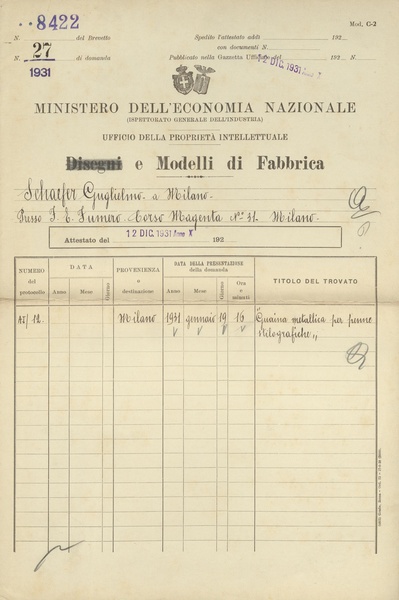 8422
Mod. C-2
N. del Brevetto
Spedito l'attestato addì 192
con documenti N.
N. 27 di domanda
Pubblicato nella Gazzetta Ufficiale del 192 N.
12 DIC. 1931 Anno X
1931
MINISTERO DELL'ECONOMIA NAZIONALE
(ISPETTORATO GENERALE DELL'INDUSTRIA)
UFFICIO DELLA PROPRIETÀ INTELLETTUALE
Disegni e Modelli di Fabbrica
Schaefer Guglielmo a Milano.
Presso I. E. Fumero Corso Magenta N° 31. Milano.
Attestato del 12 DIC. 1931 Anno X 192
NUMERO del protocollo
DATA
Anno Mese Giorno
PROVENIENZA e destinazione
DATA DELLA PRESENTAZIONE della domanda
Anno Mese Giorno Ora e minuti
TITOLO DEL TROVATO
12. Milano 1931 gennaio 19 16 "Guaina metallica per penne
stilografiche"